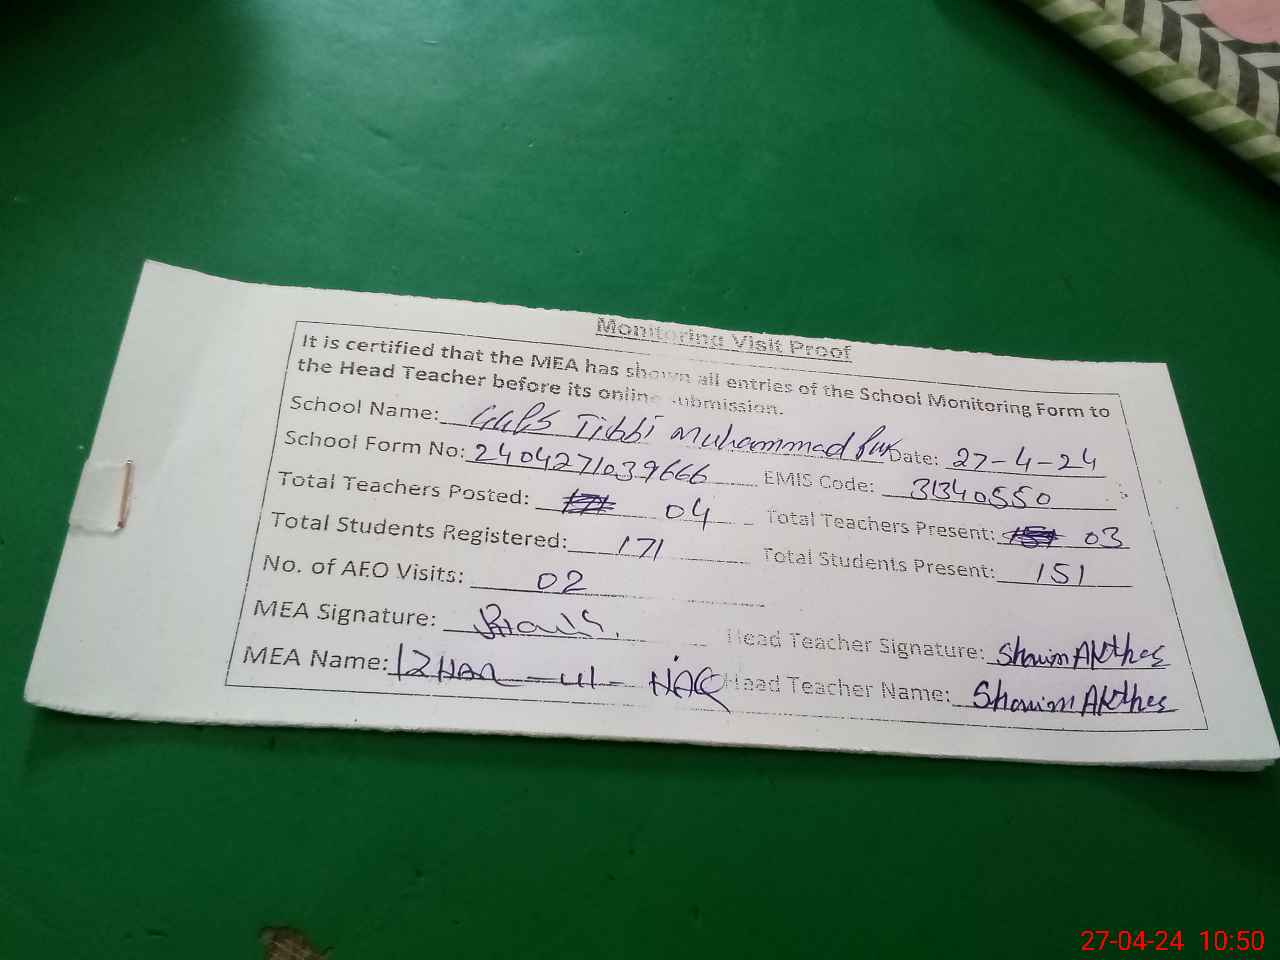 Monitoring Visit Proof
It is certified that the MEA has shown all entries of the School Monitoring Form to
the Head Teacher before its online submission.
School Name: Tibbi Muhammad Date: 27-4-24
School Form No: 2404271039666 EMIS Code: 31340550
Total Teachers Posted: 04 Total Teachers Present: 03
Total Students Registered: 171 Total Students Present: 151
No. of AEO Visits: 02
MEA Signature: Head Teacher Signature: Shamim Akther
MEA Name: IZHAR-ul-HAQ Head Teacher Name: Shamim Akther
27-04-24 10:50